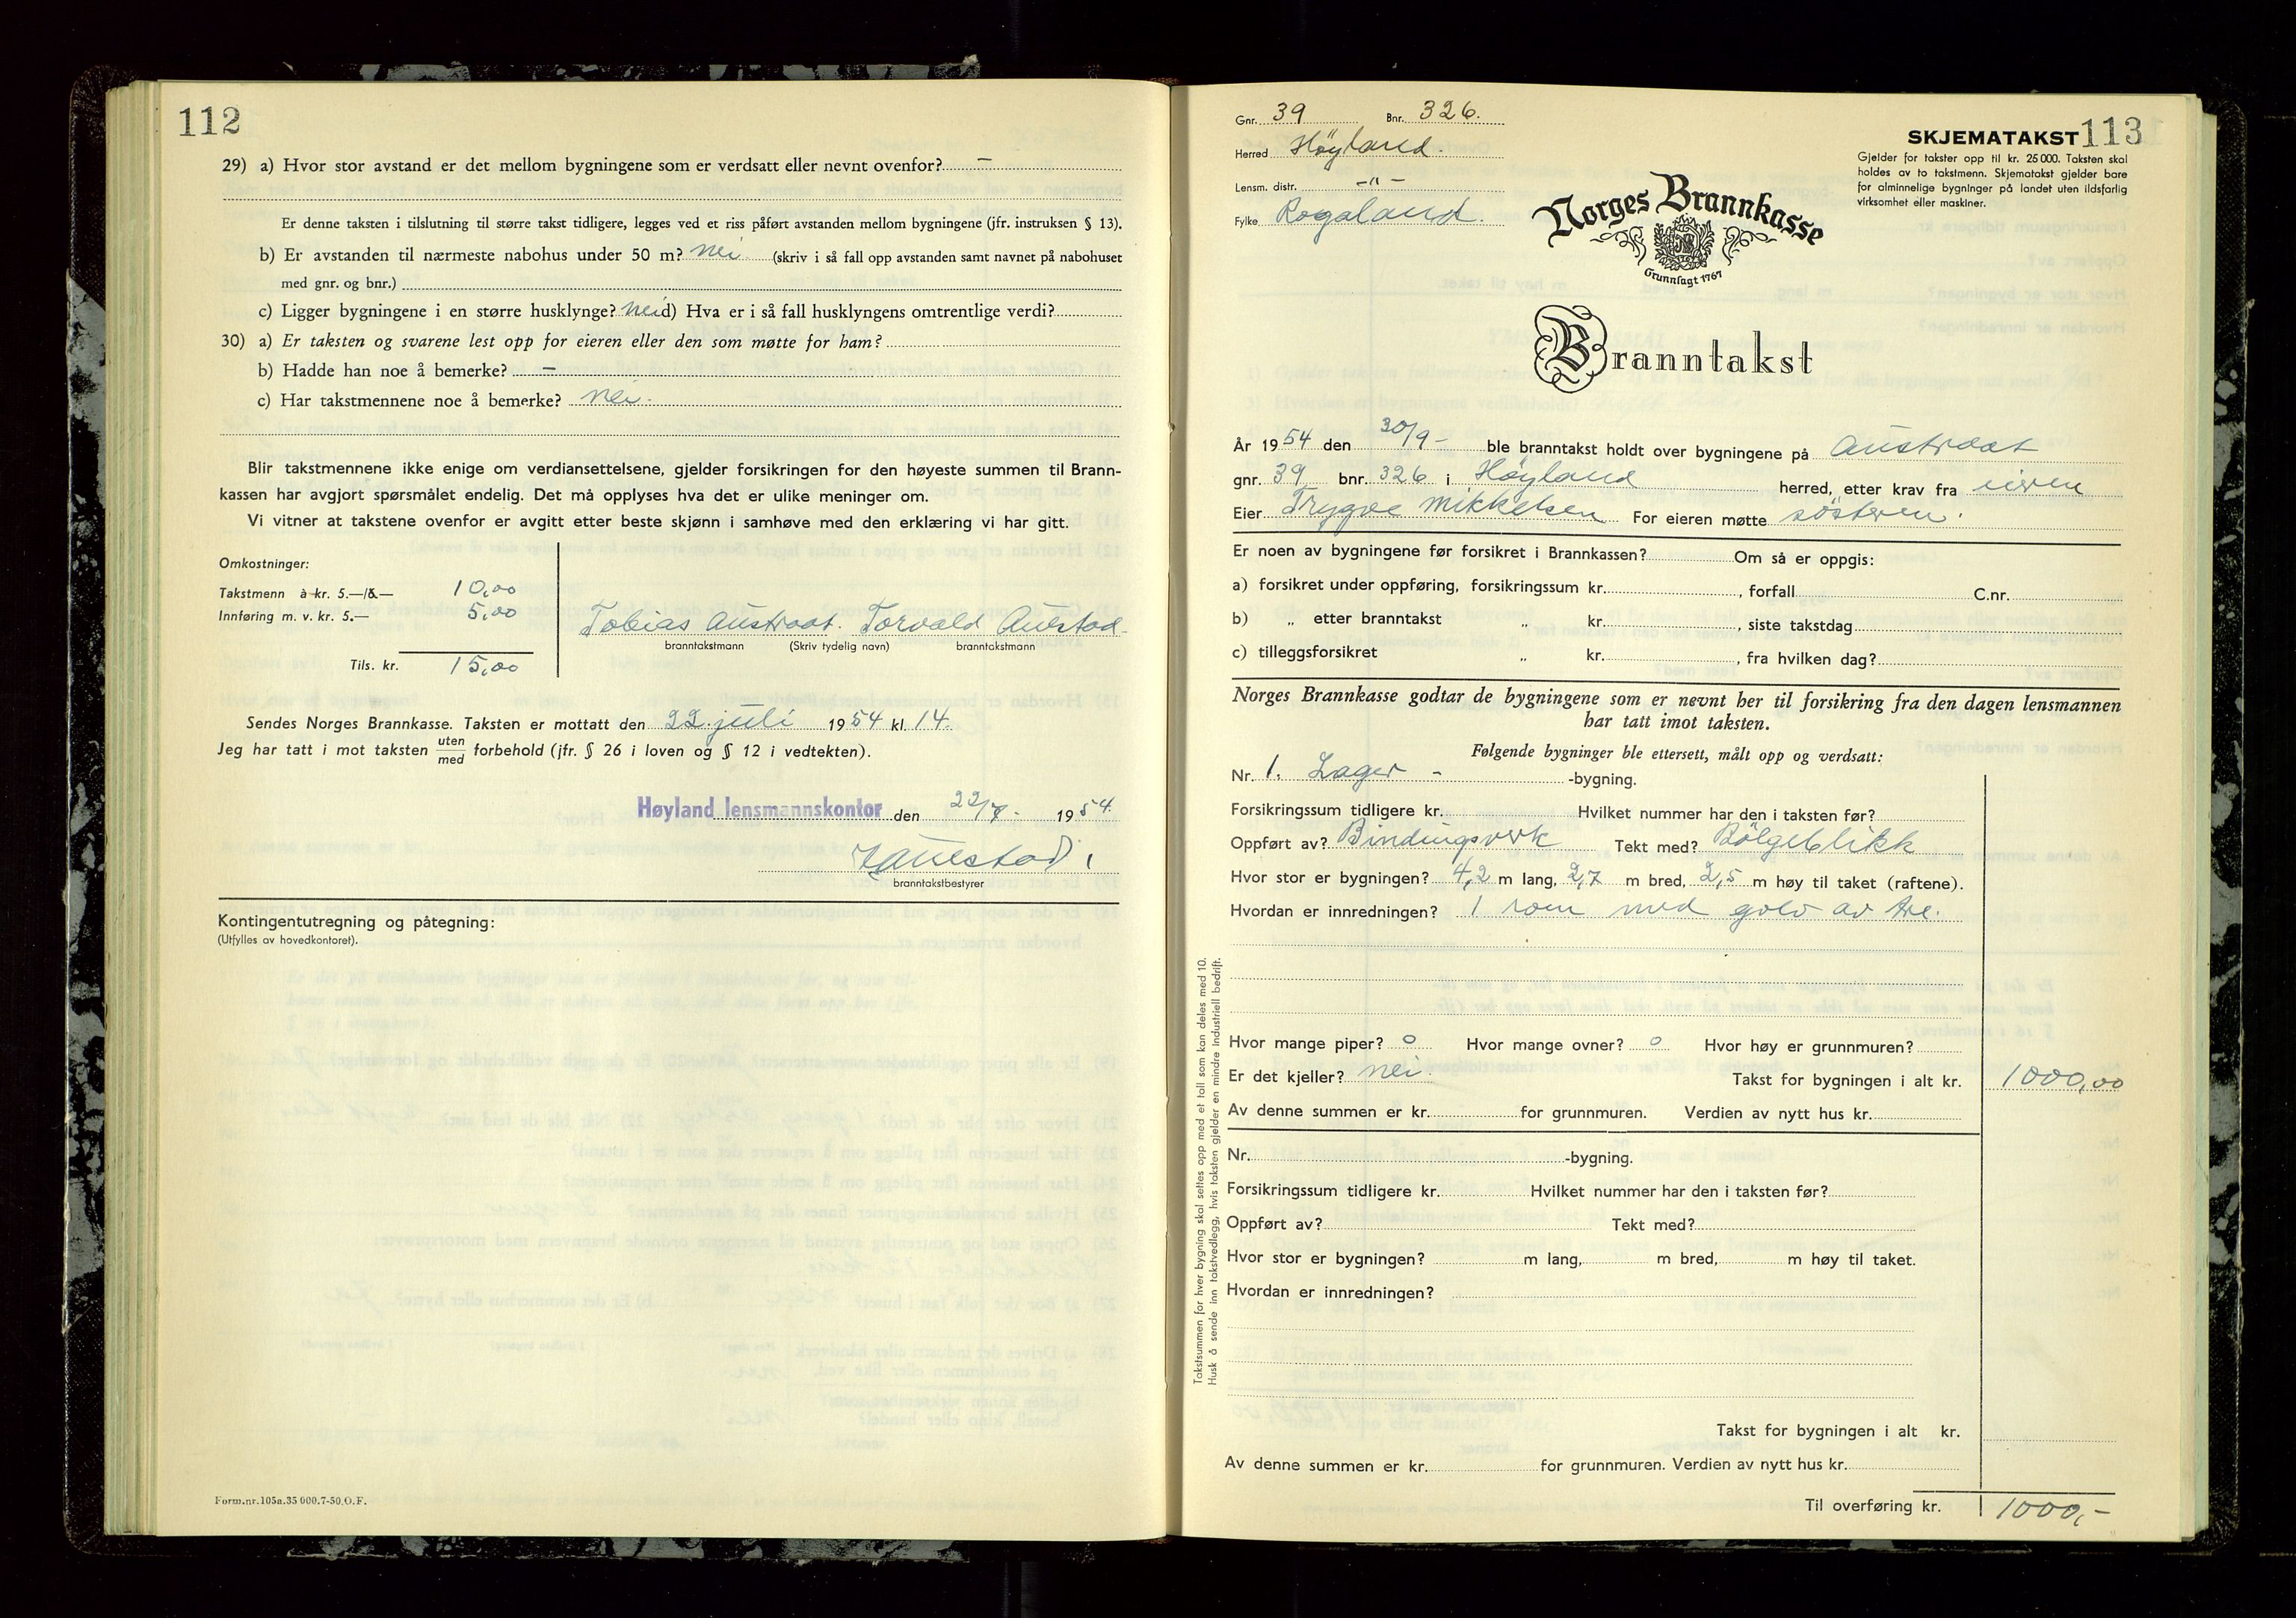 112
29) a) Hvor stor avstand er det mellom bygningene som er verdsatt eller nevnt ovenfor? —
Er denne taksten i tilslutning til større takst tidligere, legges ved et riss påført avstanden mellom bygningene (jfr. instruksen § 13).
b) Er avstanden til nærmeste nabohus under 50 m? nei (skriv i så fall opp avstanden samt navnet på nabohuset
med gnr. og bnr.)
c) Ligger bygningene i en større husklynge? nei d) Hva er i så fall husklyngens omtrentlige verdi?
30) a) Er taksten og svarene lest opp for eieren eller den som møtte for ham?
b) Hadde han noe å bemerke? —
c) Har takstmennene noe å bemerke? nei.
Blir takstmennene ikke enige om verdiansettelsene, gjelder forsikringen for den høyeste summen til Brann-
kassen har avgjort spørsmålet endelig. Det må opplyses hva det er ulike meninger om.
Vi vitner at takstene ovenfor er avgitt etter beste skjønn i samhøve med den erklæring vi har gitt.
Omkostninger:
Takstmenn à kr. 5.—/8.— 10,00
Innføring m. v. kr. 5.— 5,00
Tils. kr. 15,00
Tobias Austraat. Torvald Auestad
branntakstmann (Skriv tydelig navn) branntakstmann
Sendes Norges Brannkasse. Taksten er mottatt den 22. juli 1954 kl. 14.
Jeg har tatt i mot taksten uten/med forbehold (jfr. § 26 i loven og § 12 i vedtekten).
Høyland lensmannskontor den 22/7. 1954.
Auestad
branntakstbestyrer
Kontingentutregning og påtegning:
(Utfylles av hovedkontoret).
Form.nr.105a.35 000.7-50.O.F.
Gnr. 39 Bnr. 326.
Herred Höyland.
Lensm. distr. —"—
Fylke Rogaland.
SKJEMATAKST 113
Gjelder for takster opp til kr. 25 000. Taksten skal
holdes av to takstmenn. Skjematakst gjelder bare
for alminnelige bygninger på landet uten ildsfarlig
virksomhet eller maskiner.
Norges Brannkasse
Grunnlagt 1767
Branntakst
År 1954 den 30/9- ble branntakst holdt over bygningene på Austraat
gnr. 39 bnr. 326 i Höyland herred, etter krav fra eieren
Eier Trygve Mikkelsen For eieren møtte søsteren.
Er noen av bygningene før forsikret i Brannkassen? Om så er oppgis:
a) forsikret under oppføring, forsikringssum kr. , forfall C.nr.
b) „ etter branntakst „ kr. , siste takstdag
c) tilleggsforsikret „ kr. , fra hvilken dag?
Norges Brannkasse godtar de bygningene som er nevnt her til forsikring fra den dagen lensmannen
har tatt imot taksten.
Følgende bygninger ble ettersett, målt opp og verdsatt:
Nr. 1. Lager - -bygning.
Forsikringssum tidligere kr. Hvilket nummer har den i taksten før?
Oppført av? Bindingsverk Tekt med? Bölgeblikk
Hvor stor er bygningen? 4,2 m lang, 2,7 m bred, 2,5 m høy til taket (raftene).
Hvordan er innredningen? 1 rom med golv av tre.
Hvor mange piper? 0 Hvor mange ovner? 0 Hvor høy er grunnmuren?
Er det kjeller? nei. Takst for bygningen i alt kr. 1000,00
Av denne summen er kr. for grunnmuren. Verdien av nytt hus kr.
Nr. -bygning.
Forsikringssum tidligere kr. Hvilket nummer har den i taksten før?
Oppført av? Tekt med?
Hvor stor er bygningen? m lang, m bred, m høy til taket.
Hvordan er innredningen?
Takst for bygningen i alt kr.
Av denne summen er kr. for grunnmuren. Verdien av nytt hus kr.
Til overføring kr. 1000,-
Takstsummen for hver bygning skal settes opp med et tall som kan deles med 10.
Husk å sende inn takstvedlegg, hvis taksten gjelder en mindre industriell bedrift.